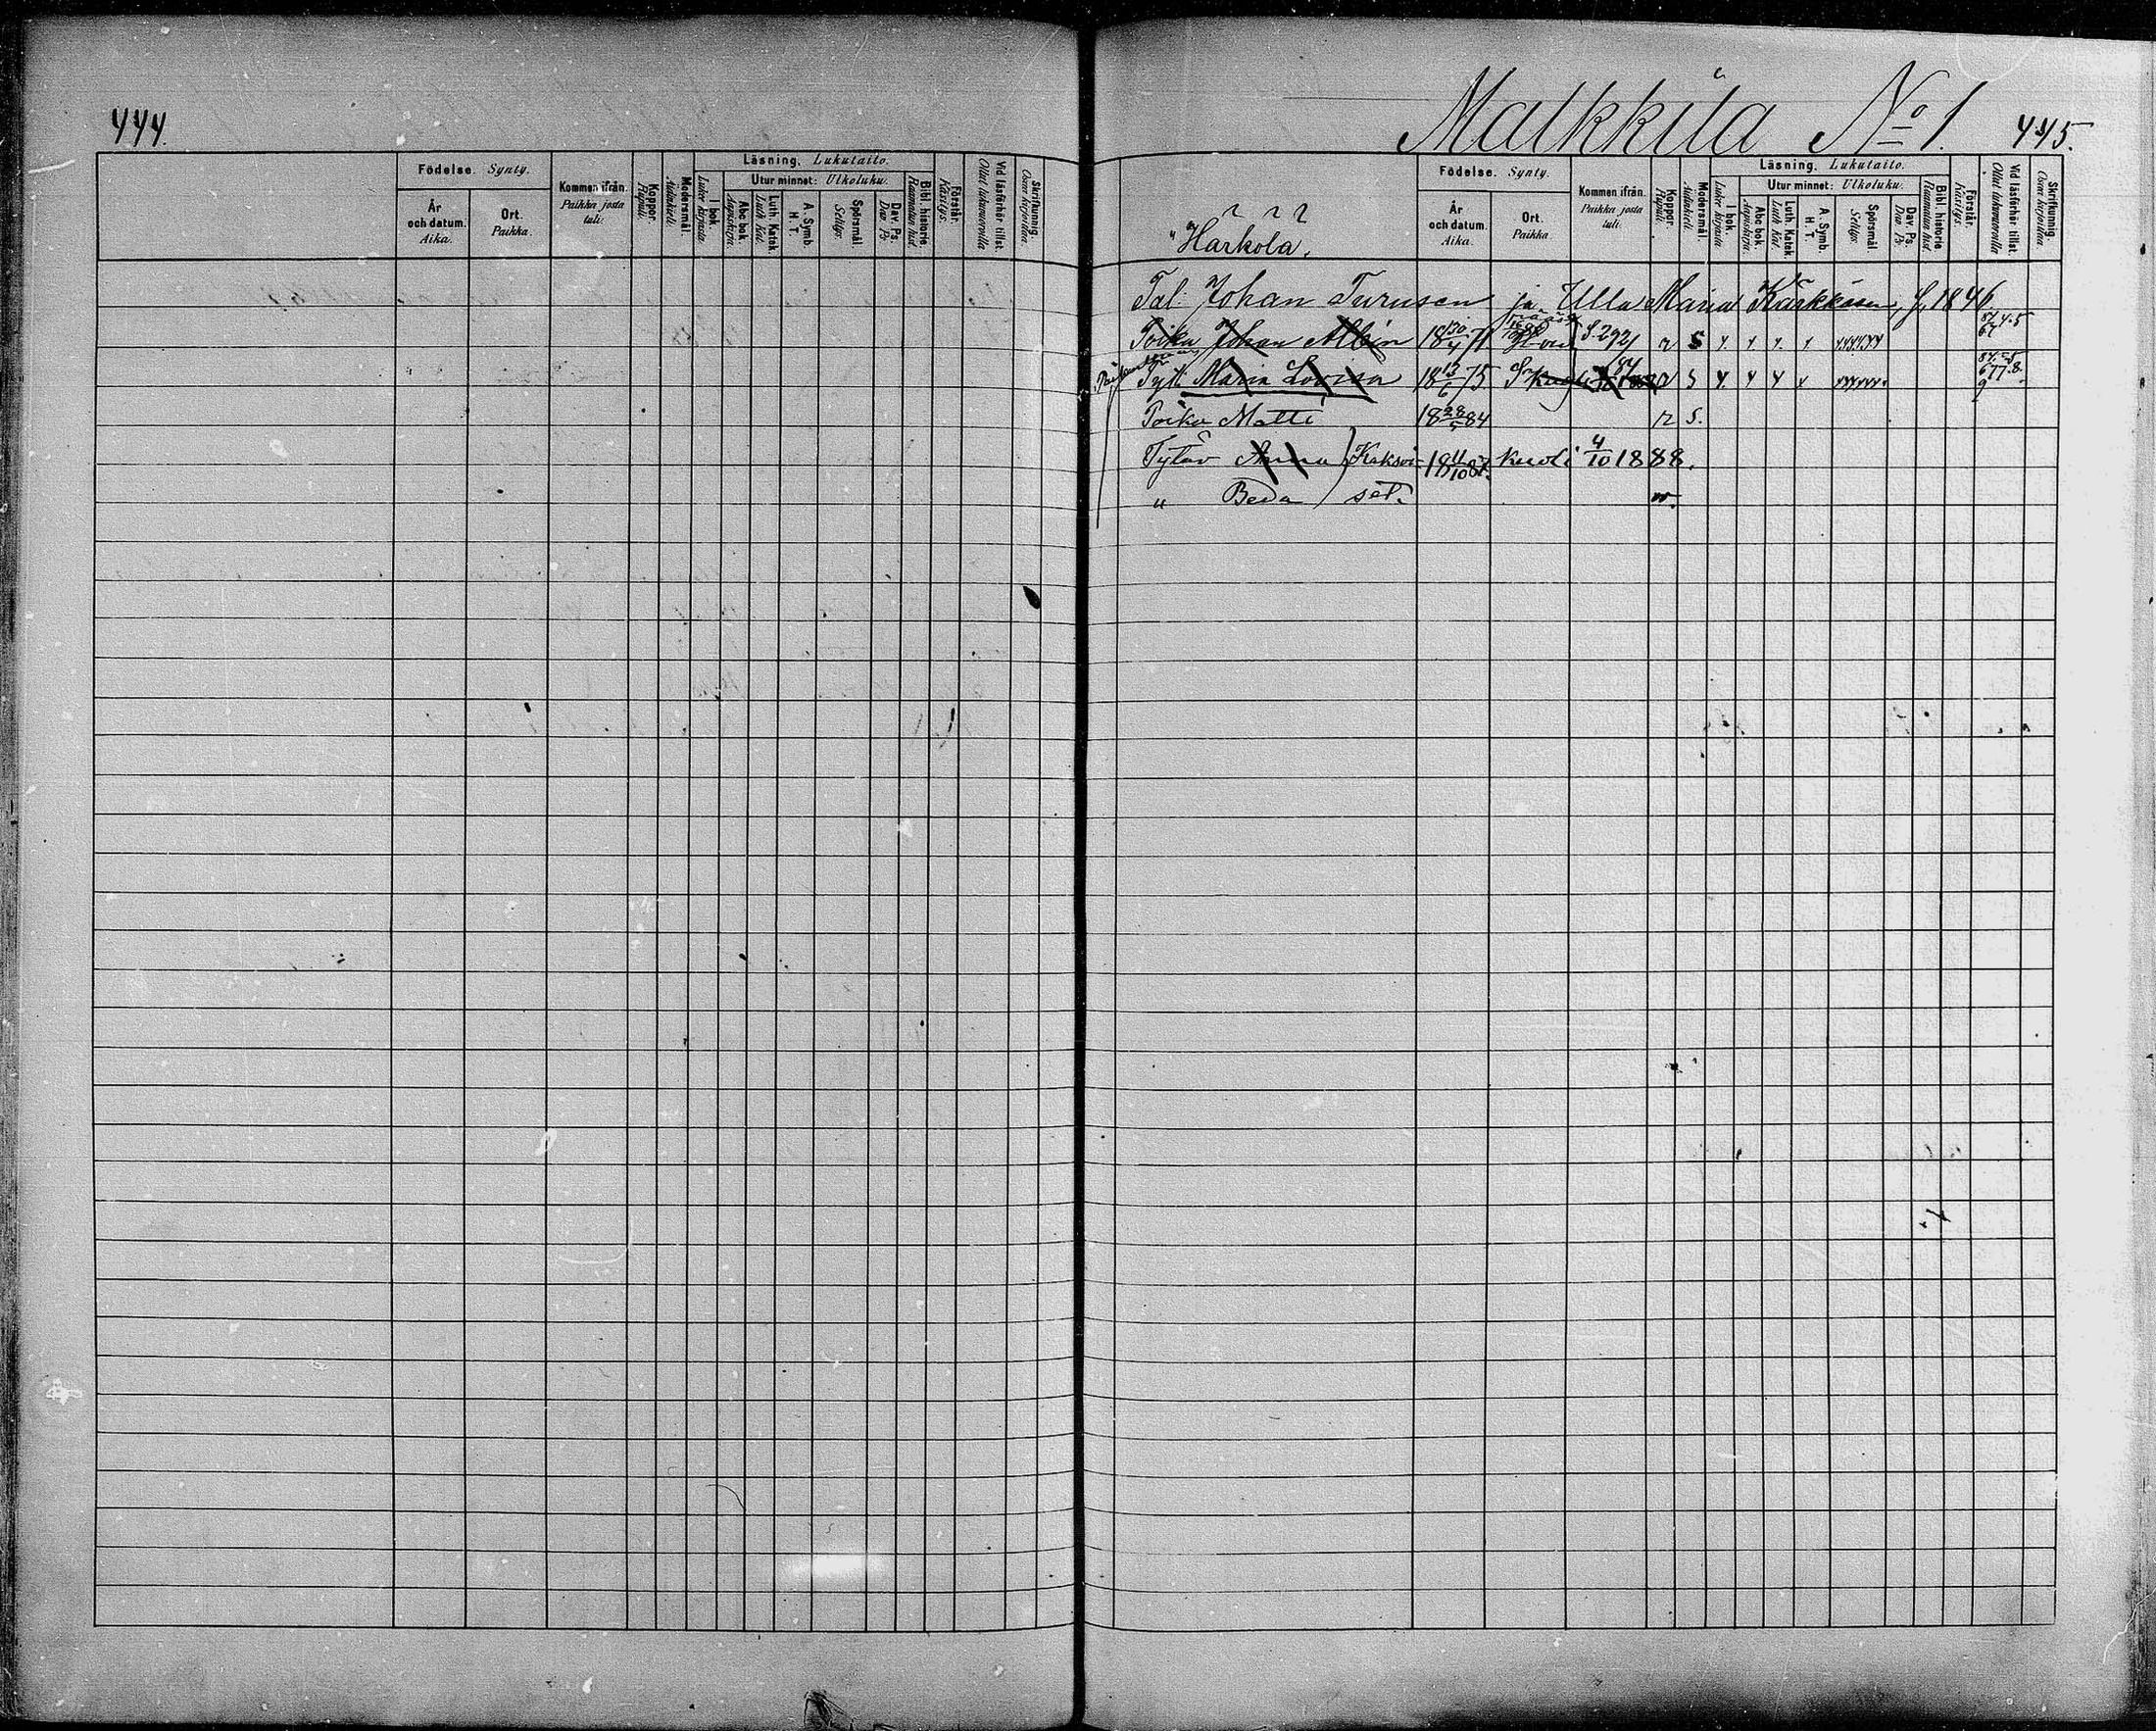 444.
Födelse. Synty.
År och datum. Aika.
Ort. Paikka.
Kommen ifrån. Paikka josta tuli:
Koppor. Rupuli.
Modersmål. Äidinkieli.
Läsning. Lukutaito.
I bok. Lukee kirjasta
Utur minnet: Ulkoluku.
Abc bok. Aapiskirja.
Luth. Katek. Luth Kat.
A. Symb. H. T.
Spörsmål Selitys.
Dav. Ps. Dav. Ps.
Bibl. historie Raamatun hist.
Förstår. Käsitys.
Vid läsförhör tillst. Ollut lukuvuorolla
Skrifkunnig. Osaa kirjoittaa.
Malkkila No 1. 445.
Födelse. Synty.
År och datum. Aika.
Ort. Paikka.
Kommen ifrån. Paikka josta tuli:
Koppor. Rupuli.
Modersmål. Äidinkieli.
Läsning. Lukutaito.
I bok. Lukee kirjasta
Utur minnet: Ulkoluku.
Abc bok. Aapiskirja.
Luth. Katek. Luth Kat.
A. Symb. H. T.
Spörsmål Selitys.
Dav. Ps. Dav. Ps.
Bibl. historie Raamatun hist.
Förstår. Käsitys.
Vid läsförhör tillst. Ollut lukuvuorolla
Skrifkunnig. Osaa kirjoittaa.
Harkola.
Tal. Johan Turusen ja Ulla Maria Kärkkäsen, S. 1846
Poika Johan Albin 18 30/4 71 S. 292 r S
Tyt. Maria Lovisa 18 13/6 75 r S
Poika Matti 18 28/5 84 r S.
Tytär Anna Kaksoi- 18 11/10 87. kuoli 4/10 1888.
" Beda set. r.